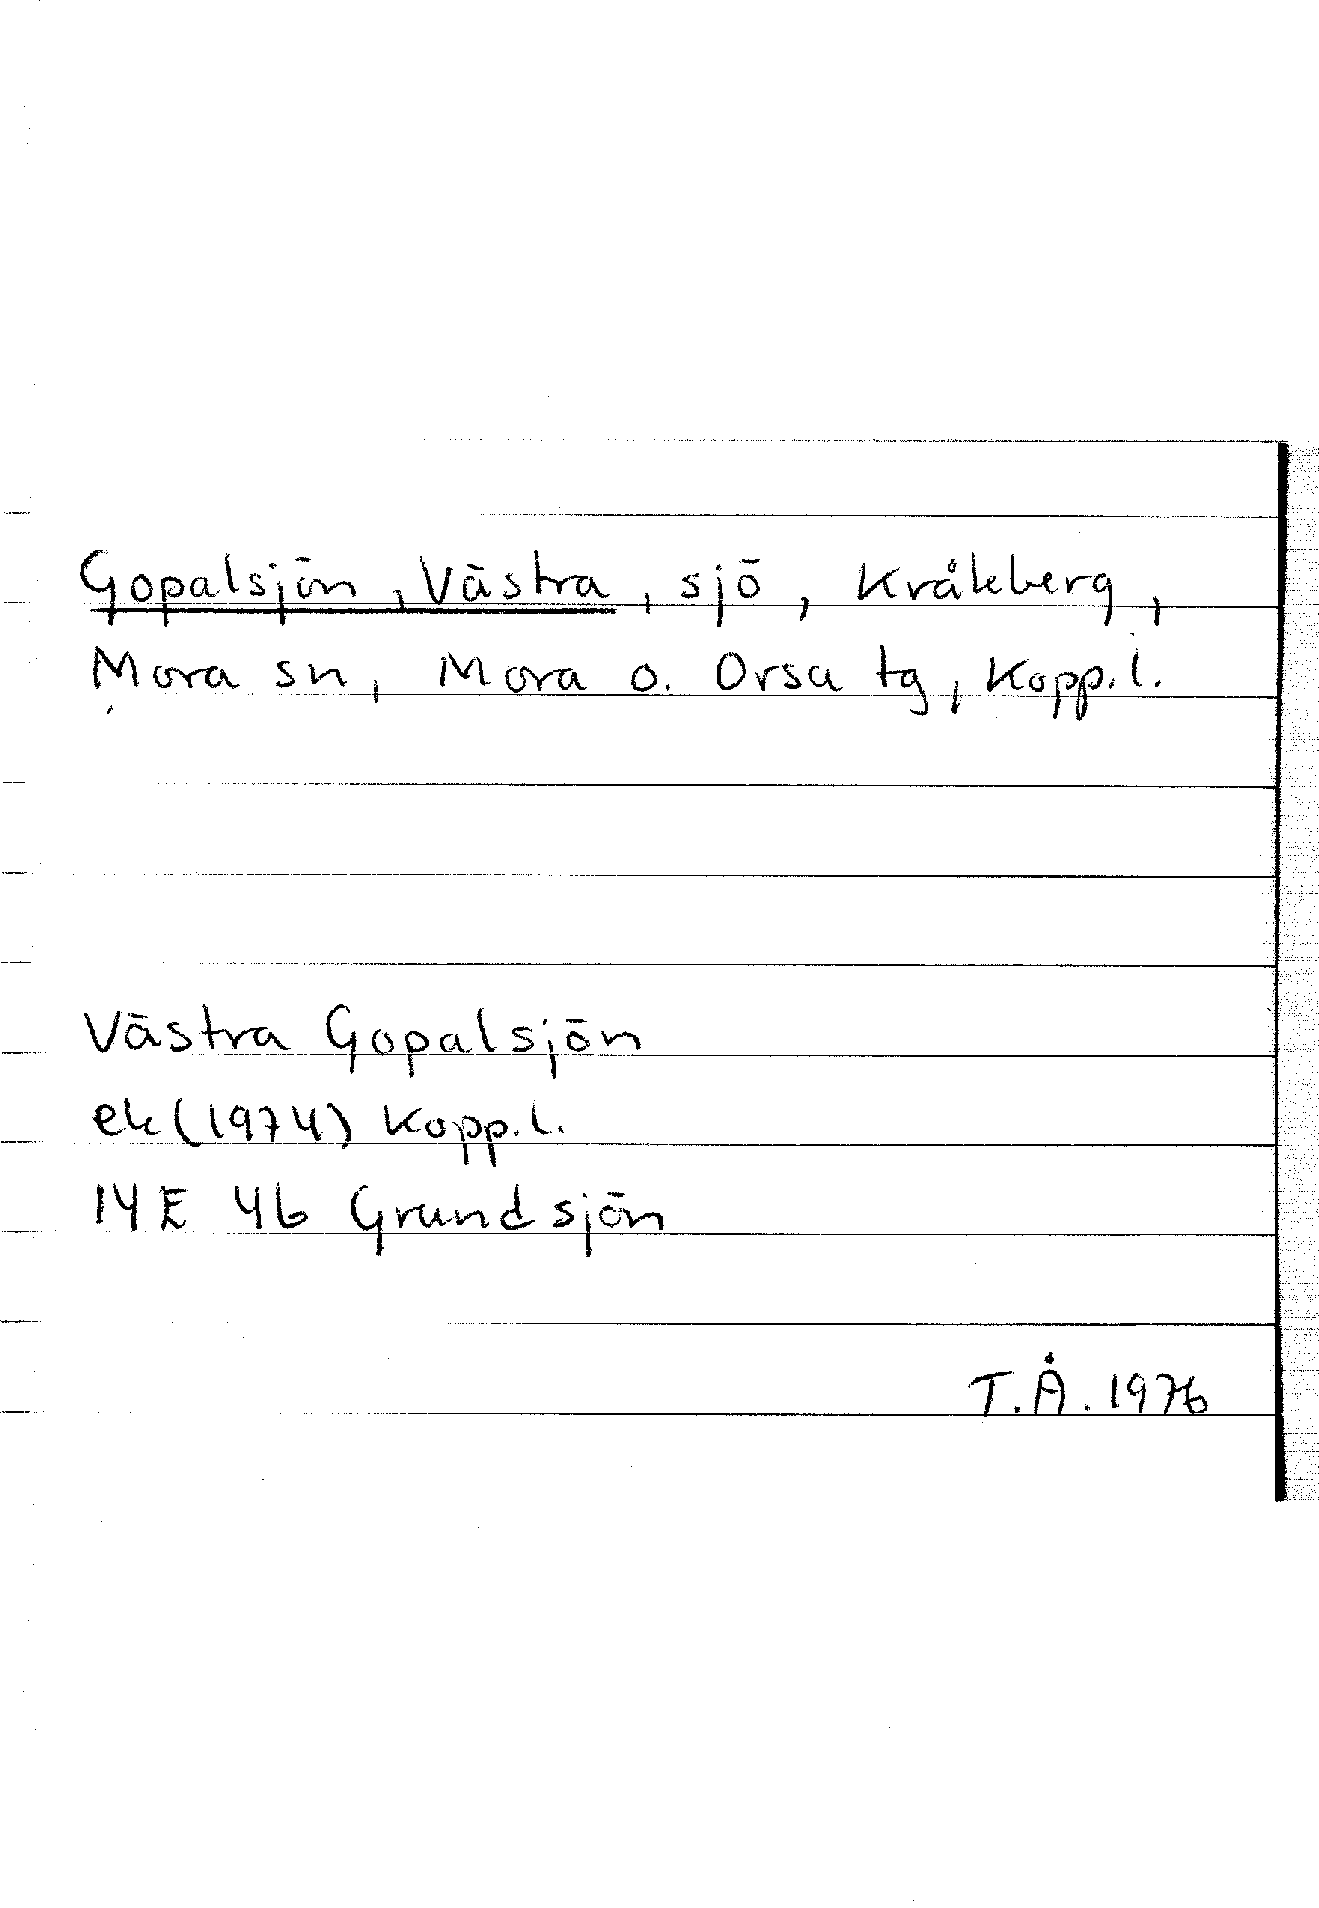 Gopalsjön, Västra, sjö, Kråkberg,
Mora sn, Mora o. Orsa tg, Kopp.l.
Västra Gopalsjön
ek (1974) Kopp.l.
14E 4b Grundsjön
T.Å. 1976